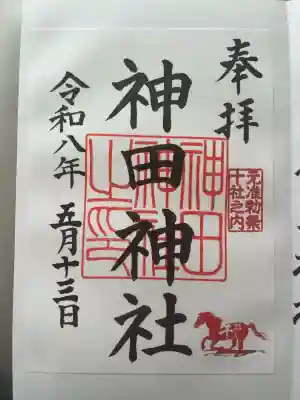 奉拝
元准勅祭
十社之内
神田神社
神田神社之印
令和八年 五月十三日